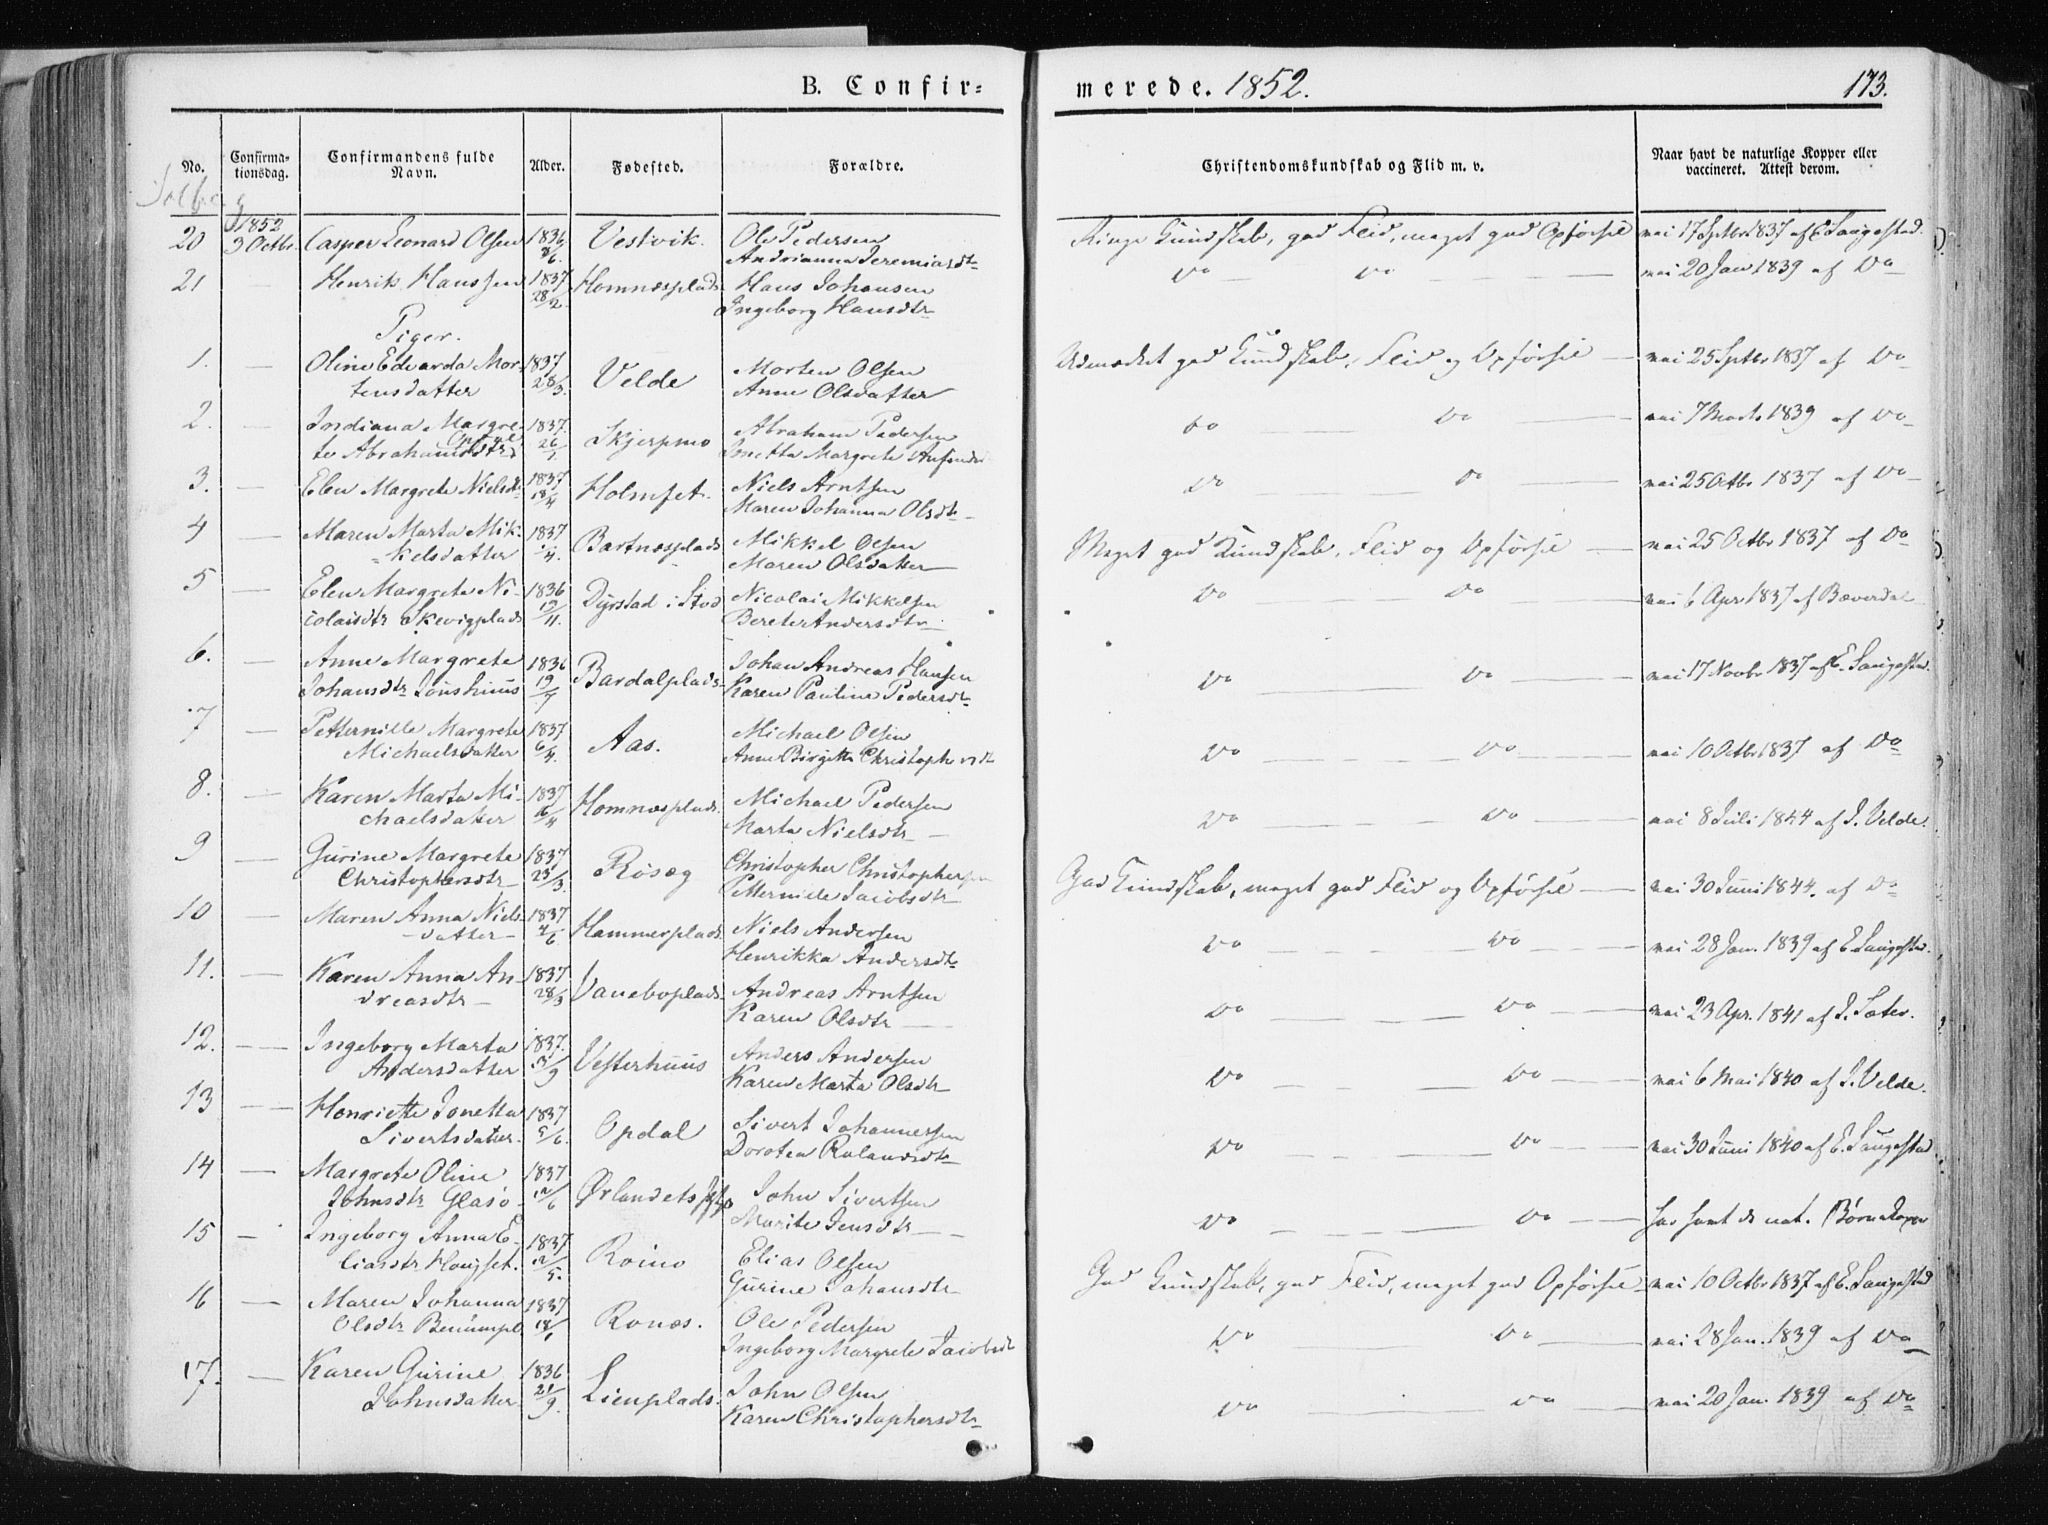 B. Confir- merede. 1852. 173.
No. Confirma- tionsdag. Confirmandens fulde Navn. Alder. Fødested. Forældre. Christendomskundskab og Flid m. v. Naar havt de naturlige Kopper eller vaccineret. Attest derom.
Solberg
1852
20 3 Octbr. Casper Leonard Olsen 1836 Vestvik. Ole Pedersen Ringe Kundskab, god Flid, meget god Opførsel vai 17 Septbr 1837 af E Saugestad.
Andrianna Jeremiasdtr
21 — Henrik Hanssen 1837 28/2 Homnæsplads Hans Johansen do do vai 20 Jan 1839 af do
Ingeborg Hansdtr
Piger.
1. — Oline Edvarda Mor- 1837 Velde Morten Olsen Udmærket god Kundskab, Flid og Opførsel — vai 25 Septbr 1837 af do
tensdatter 28/3. Anne Olsdatter
2. — Indiana Margre- 1837. Skjerpmo Abraham Pedersen do do — vai 7 Marts 1839 af do
te Abrahamsdtr 26/1. Jnetta Margrete
3. — Elen Margrete Nielsdtr 1837 18/4 Holmset. Niels Arntsen do do — vai 25 Octbr 1837 af do
Maren Johanna Olsdtr
4 — Maren Marta Mik- 1837 Bartnæsplads Mikkel Olsen Meget god Kundskab, Flid og Opførsel — vai 25 Octbr 1837 af do
kelsdatter Maren Olsdatter
5 — Elen Margrete Ni- 1836 Dyrstad i Stod Nicolai Mikkelsen do do — vai 6 Apr 1837 af Bæverdal
colaisdtr Skevigplads 19/11. Berete Andersdtr
6. — Anne Margrete 1836 Bardalplads Johan Andreas Hansen do do — vai 17 Novbr 1837 af E. Saugestad.
Johansdtr Jonshuus 19/ Karen Pauline Pedersdtr
7 — Petternille Margrete 1837 Aas. Michael Olsen do do — vai 10 Octbr 1837 af do
Michaelsdatter 6/4. Anne Birgitte Christophersdtr
8. — Karen Marta Mi- 1837 Homnæsplads. Michael Pedersen do do — vai 8 Juli 1844 af J. Velde.
chaelsdatter 16/4 Marta Nielsdtr —
9 — Gurine Margrete 1837 Røsæg Christopher Christophersen God Kundskab, meget god Flid og Opførsel — vai 30 Juni 1844. af do
Christophersdtr 23/3. Petternille Jacobsdtr
10 — Maren Anna Niels- 1837 Hammerplads. Niels Andersen do do — vai 28 Jan. 1839 af E. Saugestad.
datter — 4/6 Henrikka Andersdtr
11. — Karen Anna An- 1837 Vaneboplads. Andreas Arntsen do do — vai 23 Apr. 1841 af J. Sæter.
dreasdtr — 28/3 Karen Olsdtr —
12. — Ingeborg Marta 1837. Vesterhuus Anders Andersen do do — vai 6 Mai 1840 af J. Velde.
Andersdatter 3/9 Karen Marta Olsdtr
13 — Henriette Jonetta 1837 Opdal Sivert Johannessen do do — vai 30 Juni 1840 af E. Saugestad.
Sivertsdatter. 5/6. Dorotea Rolandsdtr
14 — Margrete Oline 1837 Ørlandets Johan Sivertsen do do — har havt de nat. Børnekopper
Johnsdtr Glasø 12/6 Marite Jensdtr —
15 — Ingeborg Anna E- 1837 Roino Elias Olsen God Kundskab, god Flid, meget god Opførsel vai 10 Octbr 1837 af E. Saugestad
liasdtr Hougset. 2/5. Gurine Johansdtr
16 — Maren Johanna 1837 Ronæs. Ole Pedersen do do — vai 28 Jan. 1839 af do
Olsdtr 18/1 Ingeborg Margrete Jacobsdtr
17. — Karen Gurine 1836 Lienplads. John Olsen do do — vai 20 Jan. 1839 af do
Johnsdatter 21/9. Karen Christophersdtr